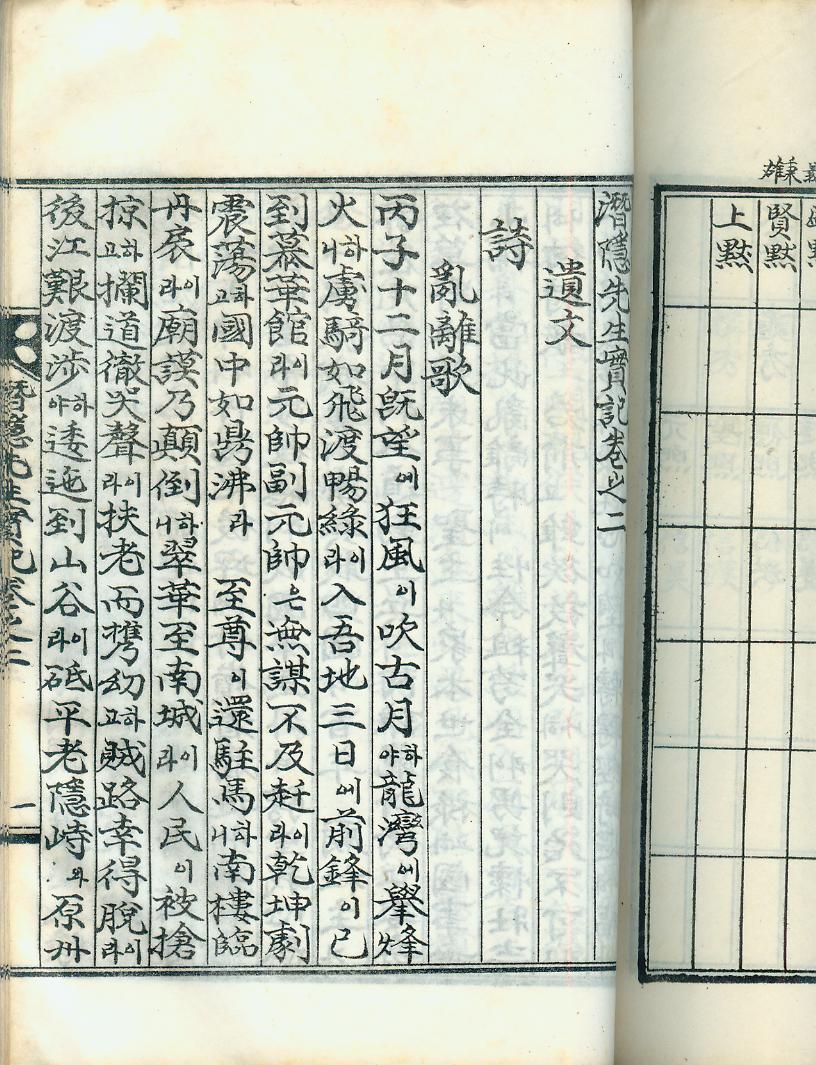 賢黙
上黙
潛隱先生實記卷之二
遺文
詩
亂離歌
丙子十二月旣望에狂風이吹古月하야龍灣에擧烽
火하니虜騎如飛渡鴨綠이라入吾地三日에前鋒이已
到慕華館이라元帥副元帥은無謀不及赶이라乾坤劇
震蕩하고國中如鼎沸라 至尊이還駐馬하니南樓臨
丹扆이라廟謨乃顚倒하니翠華至南城이라人民이被搶
掠하고攔道徹哭聲이라扶老而携幼하고賊路幸得脫이라
後江艱渡涉하야逶迤到山谷이라砥平老隱峙와原州
潛隱先生實記卷之二 一